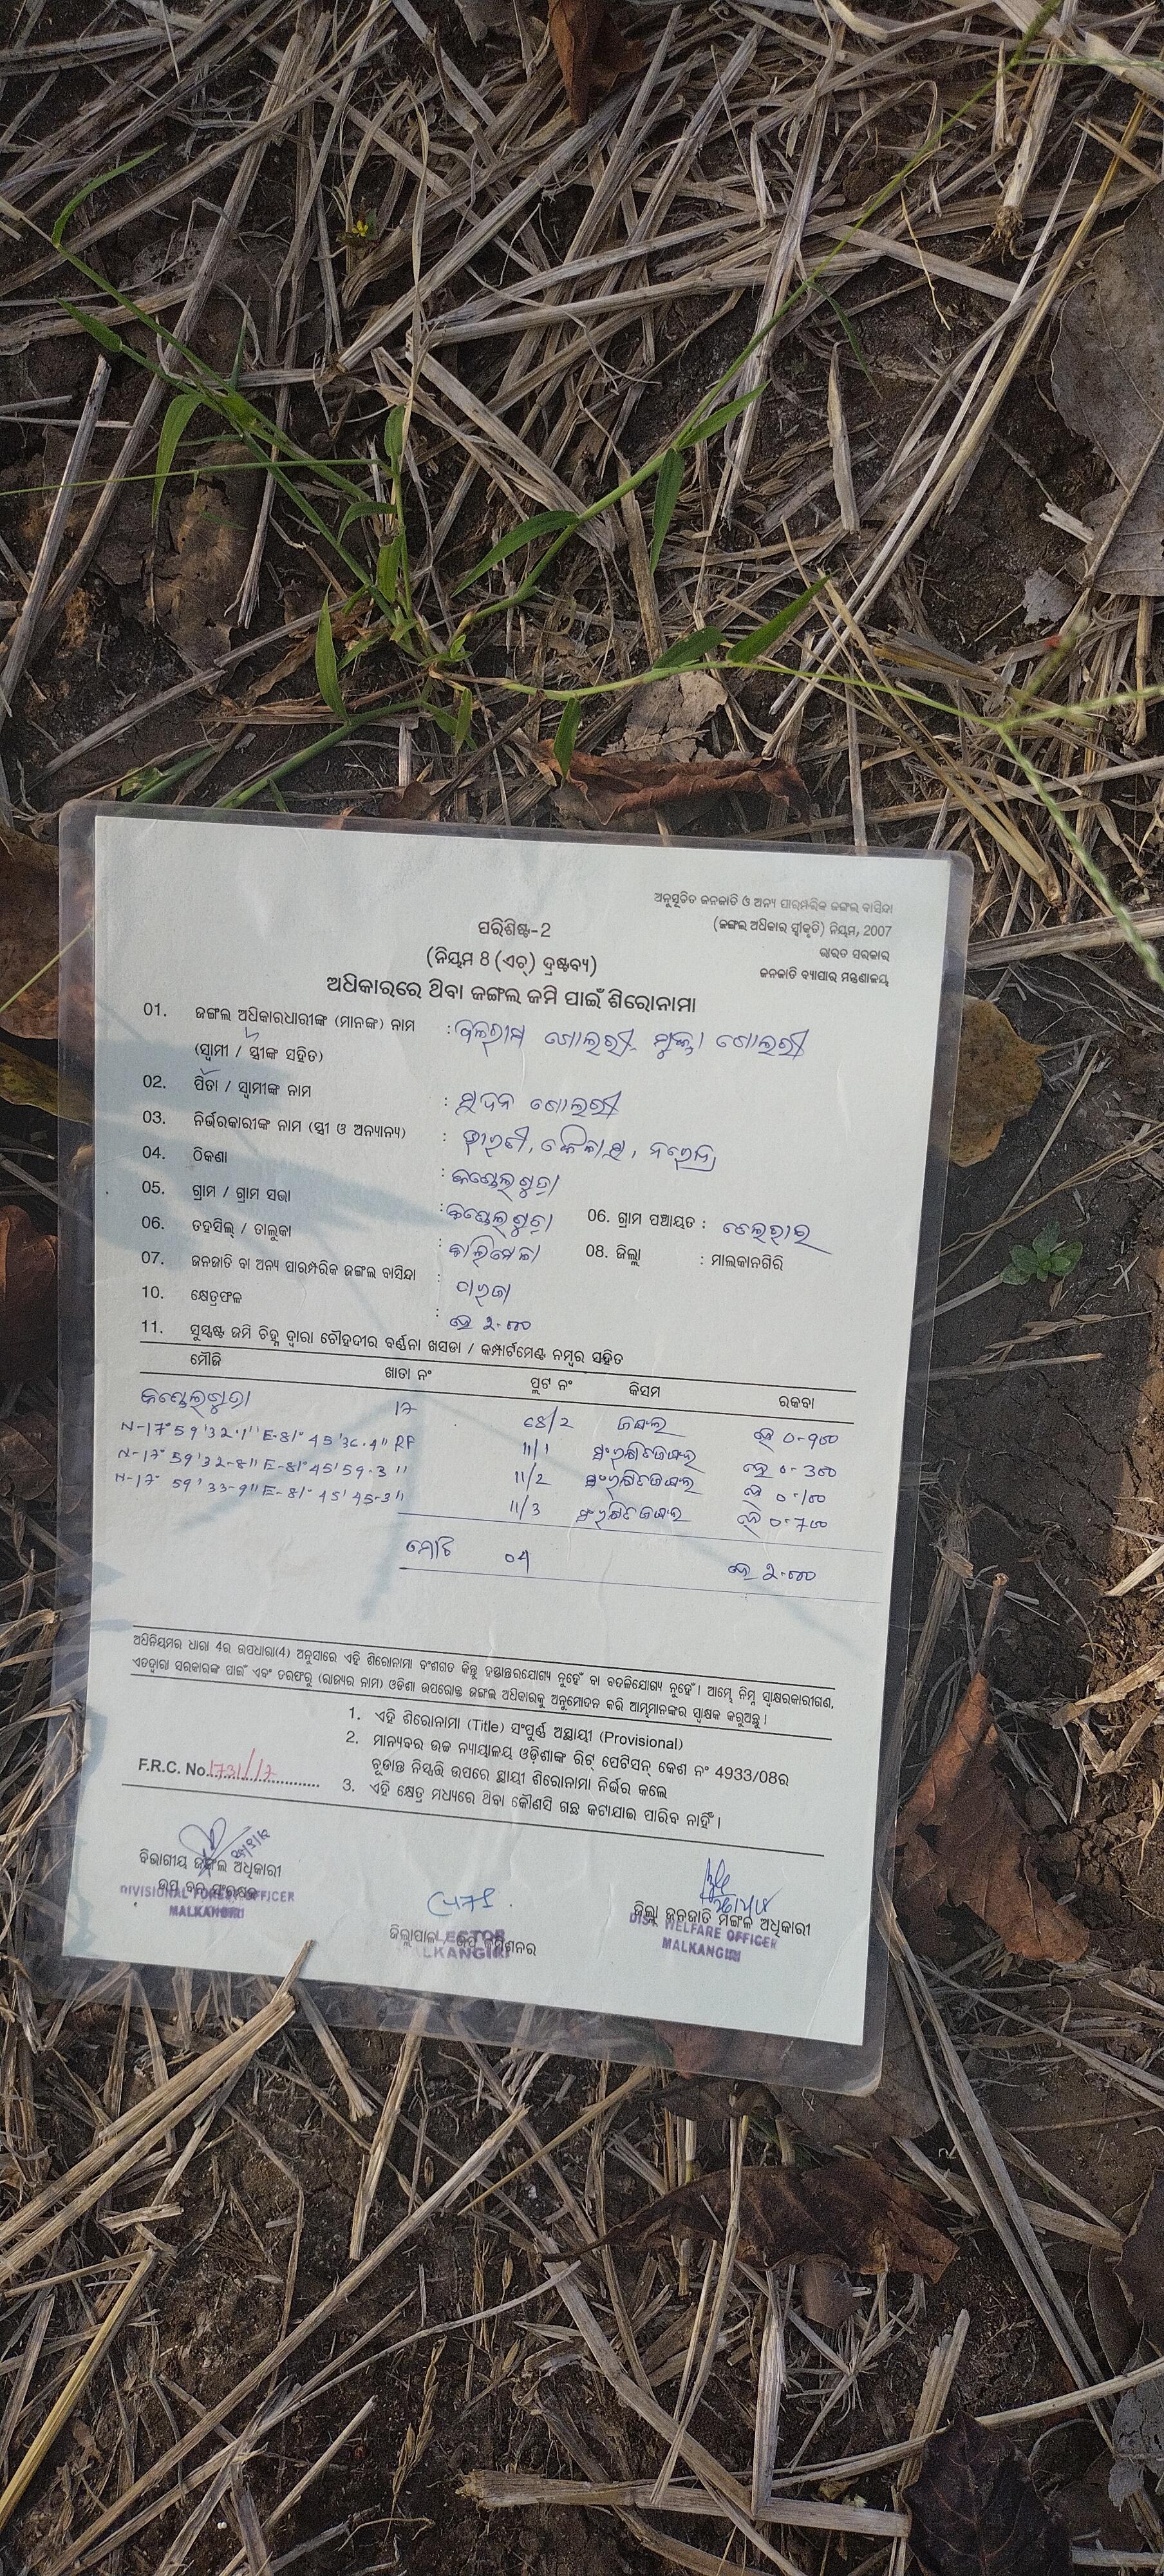 ଅନୁସୂଚିତ ଜନଜାତି ଓ ଅନ୍ୟ ପାରମ୍ପରିକ ଜଙ୍ଗଲ ବାସିନ୍ଦା
(ଜଙ୍ଗଲ ଅଧିକାର ସ୍ୱୀକୃତି) ନିୟମ, 2007
ଭାରତ ସରକାର
ଜନଜାତି ବ୍ୟାପାର ମନ୍ତ୍ରଣାଳୟ
ପରିଶିଷ୍ଟ-2
(ନିୟମ 8 (ଏଚ୍) ଦ୍ରଷ୍ଟବ୍ୟ)
ଅଧିକାରରେ ଥିବା ଜଙ୍ଗଲ ଜମି ପାଇଁ ଶିରୋନାମା
01. ଜଙ୍ଗଲ ଅଧିକାରଧାରୀଙ୍କ (ମାନଙ୍କ) ନାମ : ବଳରାମ ଗୋଲରୀ, ମୁକ୍ତା ଗୋଲରୀ
(ସ୍ୱାମୀ / ସ୍ତ୍ରୀଙ୍କ ସହିତ)
02. ପିତା / ସ୍ୱାମୀଙ୍କ ନାମ : ଗୋଲରୀ
03. ନିର୍ଭରକାରୀଙ୍କ ନାମ (ସ୍ତ୍ରୀ ଓ ଅନ୍ୟାନ୍ୟ) :
04. ଠିକଣା :
05. ଗ୍ରାମ / ଗ୍ରାମ ସଭା : 06. ଗ୍ରାମ ପଞ୍ଚାୟତ :
06. ତହସିଲ୍ / ତାଲୁକା : କାଲିମେଳା 08. ଜିଲ୍ଲା : ମାଲକାନଗିରି
07. ଜନଜାତି ବା ଅନ୍ୟ ପାରମ୍ପରିକ ଜଙ୍ଗଲ ବାସିନ୍ଦା :
10. କ୍ଷେତ୍ରଫଳ : ହେ ୨.୦୦୦
11. ସୁସ୍ପଷ୍ଟ ଜମି ଚିହ୍ନ ଦ୍ୱାରା ଚୌହଦୀର ବର୍ଣ୍ଣନା ଖସଡା / କମ୍ପାର୍ଟମେଣ୍ଟ ନମ୍ବର ସହିତ
ମୌଜି ଖାତା ନଂ ପ୍ଲଟ ନଂ କିସମ ରକବା
17 68/2 ଜଙ୍ଗଲ ହେ
N-17° 59'32.1" E-81° 45'36.4" RF 11/1 ହେ ୦.300
N-17° 59'32-8" E-81° 45'59-3" 11/2 ହେ ୦.100
N-17° 59'33-9" E-81° 45'45-3" 11/3 ହେ ୦.700
ମୋଟ ୦4 ହେ ୨.୦୦୦
ଅଧିନିୟମର ଧାରା 4ର ଉପଧାରା(4) ଅନୁସାରେ ଏହି ଶିରୋନାମା ବଂଶଗତ କିନ୍ତୁ ହସ୍ତାନ୍ତରଯୋଗ୍ୟ ନୁହେଁ ବା ବଦଳିଯୋଗ୍ୟ ନୁହେଁ । ଆମ୍ଭେ ନିମ୍ନ ସ୍ୱାକ୍ଷରକାରୀଗଣ,
ଏତଦ୍ୱାରା ସରକାରଙ୍କ ପାଇଁ ଏବଂ ତରଫରୁ (ରାଜ୍ୟର ନାମ) ଓଡିଶା ଉପରୋକ୍ତ ଜଙ୍ଗଲ ଅଧିକାରକୁ ଅନୁମୋଦନ କରି ଆମ୍ଭମାନଙ୍କର ସ୍ୱାକ୍ଷକ କରୁଅଛୁ ।
1. ଏହି ଶିରୋନାମା (Title) ସଂପୂର୍ଣ୍ଣ ଅସ୍ଥାୟୀ (Provisional)
2. ମାନ୍ୟବର ଉଚ୍ଚ ନ୍ୟାୟାଳୟ ଓଡ଼ିଶାଙ୍କ ରିଟ୍ ପେଟିସନ୍ କେଶ ନଂ 4933/08ର
ଚୂଡାନ୍ତ ନିସ୍ପତ୍ତି ଉପରେ ସ୍ଥାୟୀ ଶିରୋନାମା ନିର୍ଭର କଲେ
F.R.C. No. 1731/17
3. ଏହି କ୍ଷେତ୍ର ମଧ୍ୟରେ ଥିବା କୌଣସି ଗଛ କଟାଯାଇ ପାରିବ ନାହିଁ ।
ବିଭାଗୀୟ ଜଙ୍ଗଲ ଅଧିକାରୀ
ଉପ ବନ ସଂରକ୍ଷକ
DIVISIONAL FOREST OFFICER
MALKANGIRI
ଜିଲ୍ଲାପାଳ / ଉପ କମିଶନର
ଜିଲ୍ଲା ଜନଜାତି ମଙ୍ଗଳ ଅଧିକାରୀ
DIST. WELFARE OFFICER
MALKANGIRI